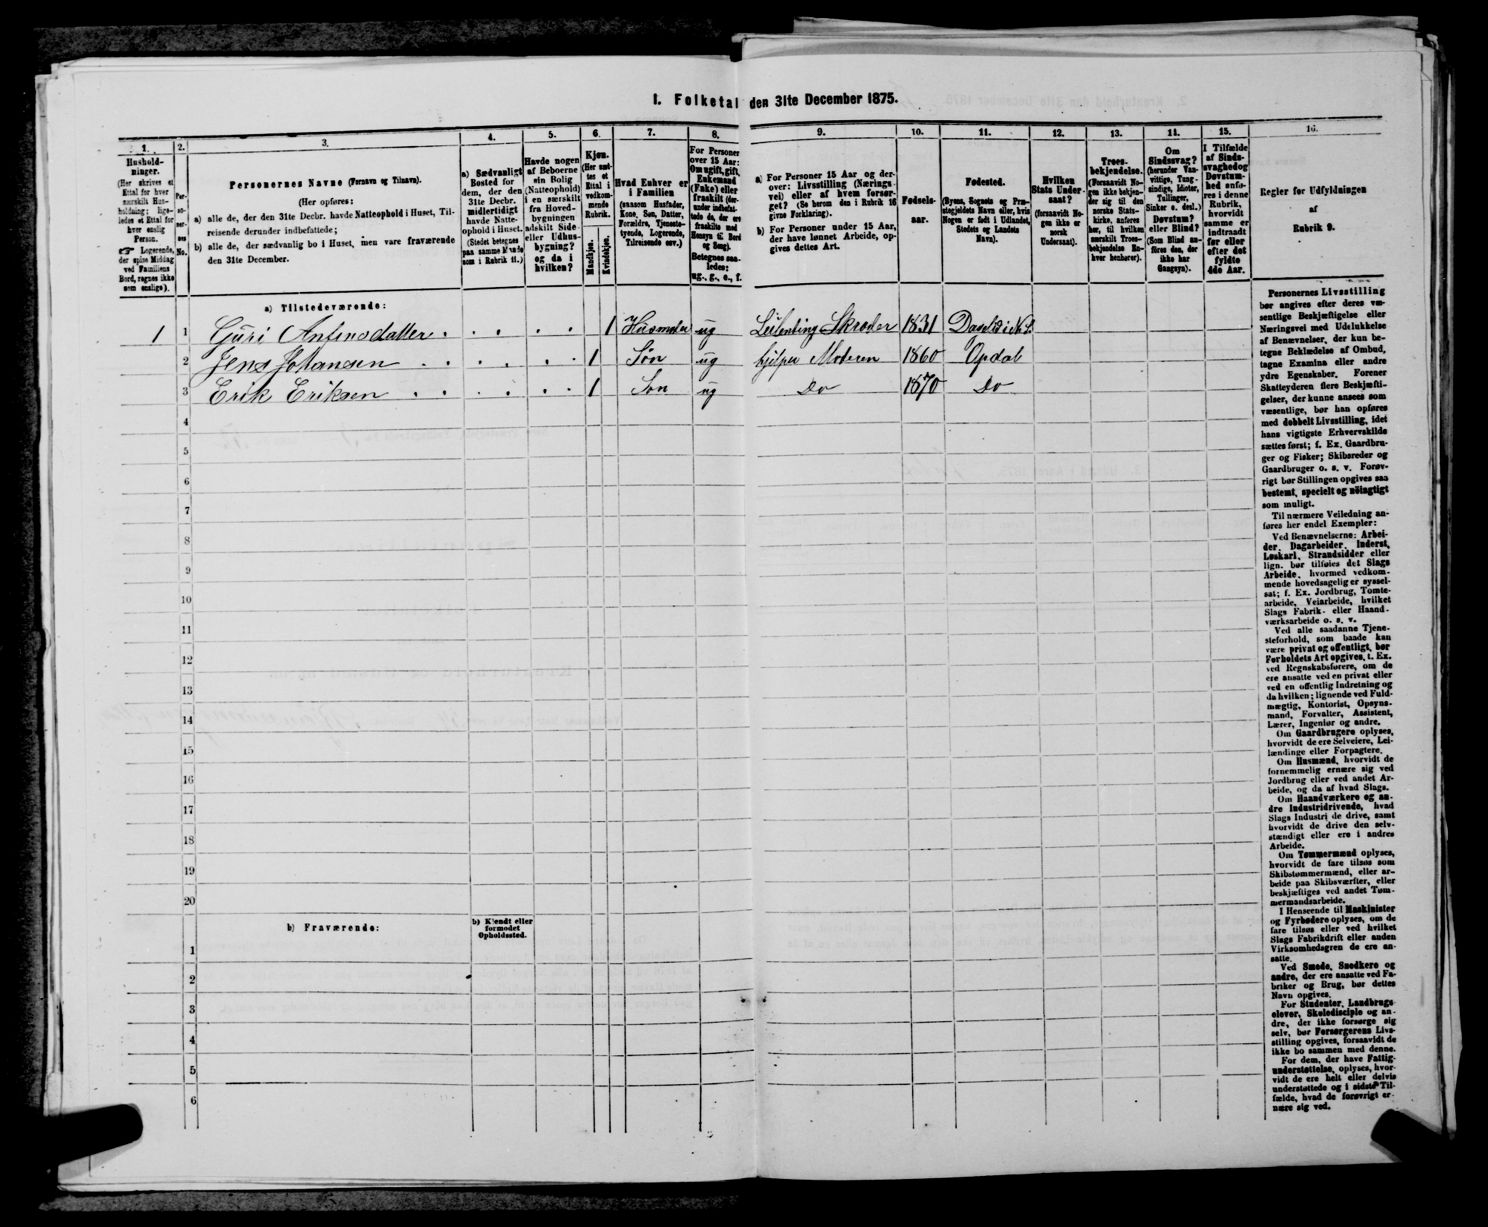 1. Folketal den 31te December 1875.
1.
Hushold-
ninger.
(Her skrives et
Ettal for hver
særskilt Hus-
holdning; lige-
ledes et Ettal for
hver enslig
Person.
Logerende,
der spise Middag
ved Familiens
Bord, regnes ikke
som enslige).
2.
Per-
so-
ner-
nes
No.
3.
Personernes Navne (Fornavn og Tilnavn).
(Her opføres:
a) alle de, der den 31te Decbr. havde Natteophold i Huset, Til-
reisende derunder indbefattede;
b) alle de, der sædvanlig bo i Huset, men vare fraværende
den 31te December.
4.
a) Sædvanligt
Bosted for
dem, der den
31te Decbr.
midlertidigt
havde Natte-
ophold i Huset.
(Stedet betegnes
paa samme Maade
som i Rubrik 11.)
5.
Havde nogen
af Beboerne
sin Bolig
(Natteophold)
i en særskilt
fra Hoved-
bygningen
adskilt Side-
eller Udhus-
bygning?
og da i
hvilken?
6.
Kjøn.
(Her sæt-
tes et
Ettal i
vedkom-
mende
Rubrik.
Mandkjøn.
Kvindekjøn.
7.
Hvad Enhver er
i Familien
(saasom Husfader,
Kone, Søn, Datter,
Forældre, Tjeneste-
tyende, Logerende,
Tilreisende osv.)
8.
For Personer
over 15 Aar:
Om ugift, gift,
Enkemand
(Enke) eller
fraskilt (der-
under indbefat-
tede de, der ere
fraskilte med
Hensyn til Bord
og Seng).
Betegnes saa-
ledes:
ug., g., e., f.
9.
a) For Personer 15 Aar og der-
over: Livsstilling (Nærings-
vei) eller af hvem forsør-
get? (Se herom den i Rubrik 16
givne Forklaring).
b) For Personer under 15 Aar,
der have lønnet Arbeide, op-
gives dettes Art.
10.
Fødsels-
aar.
11.
Fødested.
(Byens, Sognets og Præ-
stegjeldets Navn eller, hvis
Nogen er født i Udlandet,
Stedets og Landets
Navn).
12.
Hvilken
Stats Under-
saat?
(forsaavidt No-
gen ikke er
norsk
Undersaat).
13.
Troes-
bekjendelse.
(Forsaavidt No-
gen ikke bekjen-
der sig til den
norske Stats-
kirke, anføres
her, til hvilken
særskilt Troes-
bekjendelse En-
hver henhører).
14.
Om
Sindssvag?
(herunder Van-
vittige, Tung-
sindige, Idioter,
Tullinger,
Sinker o. desl.)
Døvstum?
eller Blind?
(Som Blind an-
føres den, der
ikke har
Gangsyn).
15.
I Tilfælde
af Sinds-
svaghedog
Døvstum-
hed anfø-
res i denne
Rubrik,
hvorvidt
samme er
indtraadt
før eller
efter det
fyldte
4de Aar.
16.
Regler for Udfyldningen
af
Rubrik 9.
a) Tilstedeværende:
1 1 Guri Antonsdatter 1 Husmoder ug Leilending Skræder 1831
2 Jens Johansen 1 Søn ug hjelper Moderen 1860 Opdal
3 Erik Eriksen 1 Søn ug Do 1870 Do
4
5
6
7
8
9
10
11
12
13
14
15
16
17
18
19
20
b) Fraværende:
b) Kjendt eller
formodet
Opholdssted.
1
2
3
4
5
6
Personernes Livsstilling
bør angives efter deres væ-
sentlige Beskjæftigelse eller
Næringsvei med Udelukkelse
af Benævnelser, der kun be-
tegne Beklædelse af Ombud,
tagne Examina eller andre
ydre Egenskaber. Forener
Skatteyderen flere Beskjæfti-
gelser, der kunne ansees som
væsentlige, bør han opføres
med dobbelt Livsstilling, idet
hans vigtigste Erhvervskilde
sættes først; f. Ex. Gaardbru-
ger og Fisker; Skibsreder og
Gaardbruger o. s. v. Forøv-
rigt bør Stillingen opgives saa
bestemt, specielt og nöiagtigt
som muligt.
Til nærmere Veiledning an-
føres her endel Exempler:
Ved Benævnelserne: Arbei-
der, Dagarbeider, Inderst,
Løskarl, Strandsidder eller
lign. bør tilføies det Slags
Arbeide, hvormed vedkom-
mende hovedsagelig er syssel-
sat; f. Ex. Jordbrug, Tomte-
arbeide, Veiarbeide, hvilket
Slags Fabrik- eller Haand-
værksarbeide o. s. v.
Ved alle saadanne Tjene-
steforhold, som baade kan
være privat og offentligt, bør
Forholdets Art opgives, t. Ex.
ved Regnskabsførere, om de
ere ansatte ved en privat eller
ved en offentlig Indretning og
da hvilken; lignende ved Fuld-
mægtig, Kontorist, Opsyns-
mand, Forvalter, Assistent,
Lærer, Ingeniør og andre.
Om Gaardbrugere oplyses,
hvorvidt de ere Selveiere, Lei-
lændinge eller Forpagtere.
Om Husmænd, hvorvidt de
fornemmelig ernære sig ved
Jordbrug eller ved andet Ar-
beide, og da af hvad Slags.
Om Haandværkere og an-
dre Industridrivende, hvad
Slags Industri de drive, samt
hvorvidt de drive den selv-
stændigt eller ere i andres
Arbeide.
Om Tømmermænd oplyses,
hvorvidt de fare tilsøs som
Skibstømmermænd, eller ar-
beide paa Skibsværfter, eller
beskjæftiges ved andet Tøm-
mermandsarbeide.
I Henseende til Maskinister
og Fyrbødere oplyses, om de
fare tilsøs eller ved hvilket
Slags Fabrikdrift eller anden
Virksomhedsgren de ere an-
satte.
Ved Smede, Snedkere og
andre, der ere ansatte ved Fa-
briker og Brug, bør dettes
Navn opgives.
For Studenter, Landbrugs-
elever, Skoledisciple og an-
dre, der ikke forsørge sig
selv, bør Forsørgerens Livs-
stilling opgives, forsaavidt de
ikke bo sammen med denne.
For dem, der have Fattig-
understøttelse, oplyses, hvor-
vidt de ere helt eller delvis
understøttede og i sidste Til-
fælde, hvad de forøvrigt er-
nære sig ved.